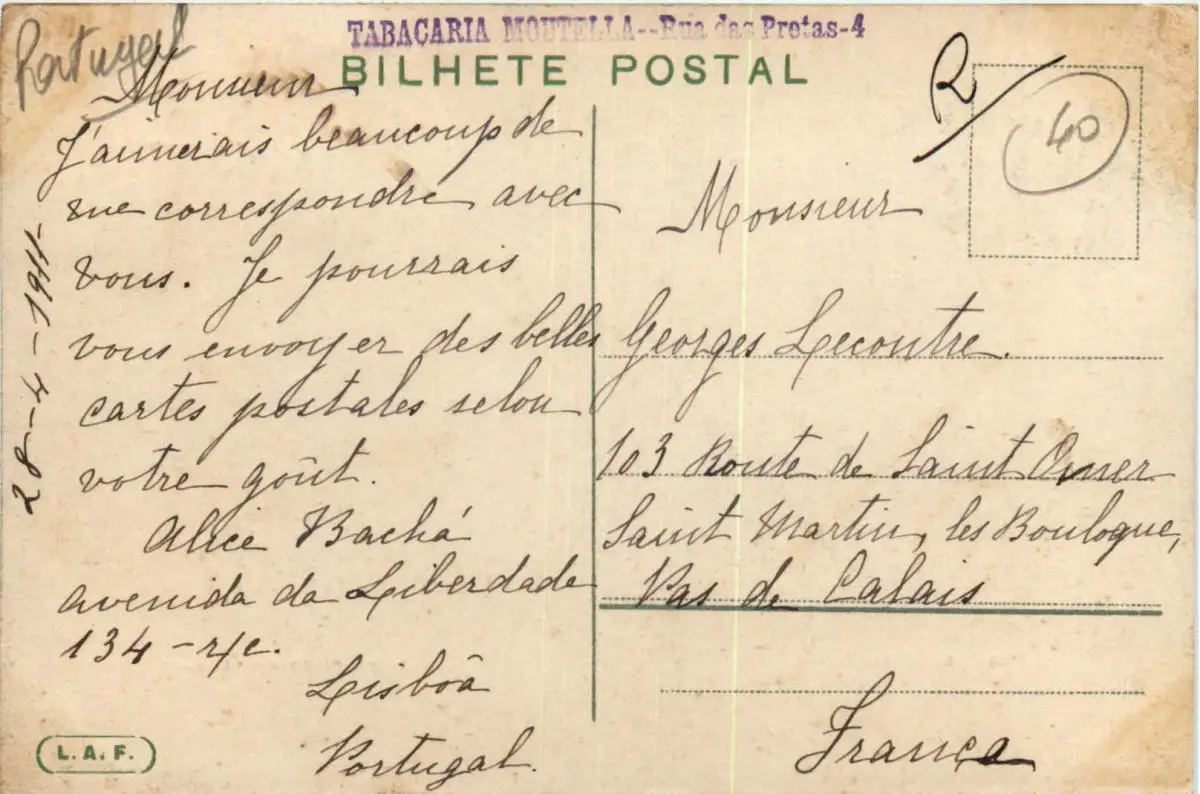 Portugal
TABACARIA MOUTELLA--Rua das Pretas-4
BILHETE POSTAL
Monsieur
J'aimerais beaucoup de
me correspondre avec
vous. Je pourrais
vous envoyer des belles
cartes postales selon
votre goût.
Alice Bachá
Avenida da Liberdade
134 - r/c.
Lisbôa
Portugal.
28-4-1911-
L. A. F.
R/
40
Monsieur
Georges Lecontre.
103 Route de Saint Omer
Saint Martin, les Boulogne,
Pas de Calais
França